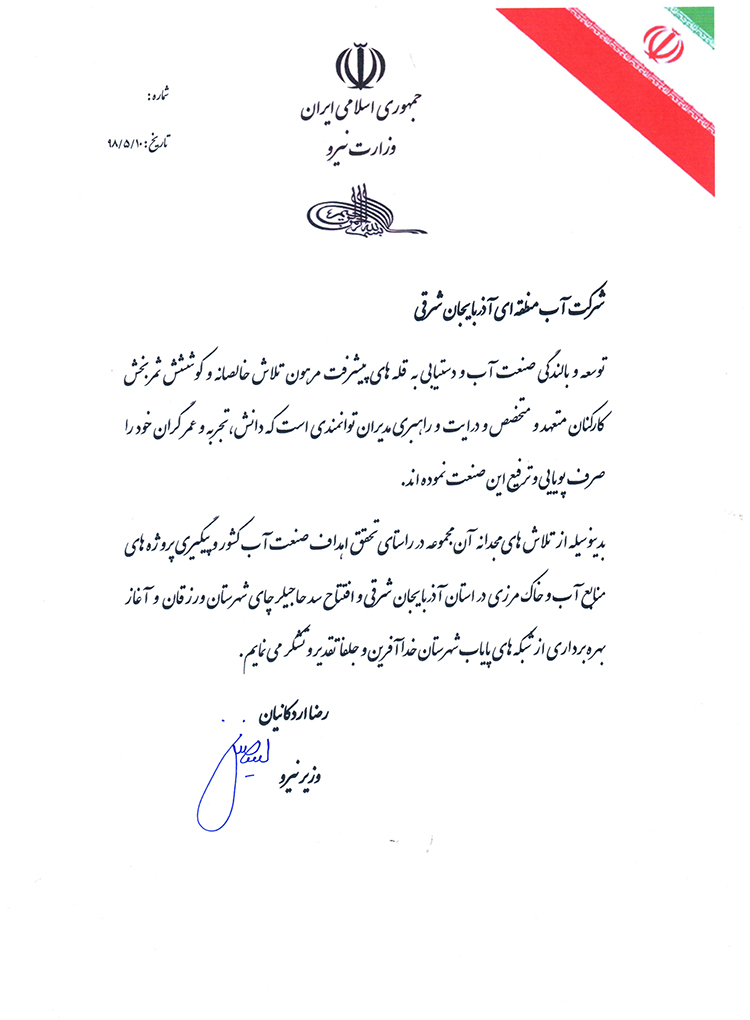 جمهوری اسلامی ایران
وزارت نیرو
شماره:
تاریخ: ۹۸/۵/۱۰
بسم الله الرحمن الرحیم
شرکت آب منطقه ای آذربایجان شرقی
توسعه و بالندگی صنعت آب و دستیابی به قله های پیشرفت مرهون تلاش خالصانه و کوشش ثمربخش
کارکنان متعهد و متخصص و درایت و راهبری مدیران توانمندی است که دانش، تجربه و عمر گران خود را
صرف پویایی و ترفیع این صنعت نموده اند.
بدینوسیله از تلاش های مجدانه آن مجموعه در راستای تحقق اهداف صنعت آب کشور و پیگیری پروژه های
منابع آب و خاک مرزی در استان آذربایجان شرقی و افتتاح سد حاجیلرچای شهرستان ورزقان و آغاز
بهره برداری از شبکه های پایاب شهرستان خداآفرین و جلفا تقدیر و تشکر می نمایم.
رضا اردکانیان
وزیر نیرو